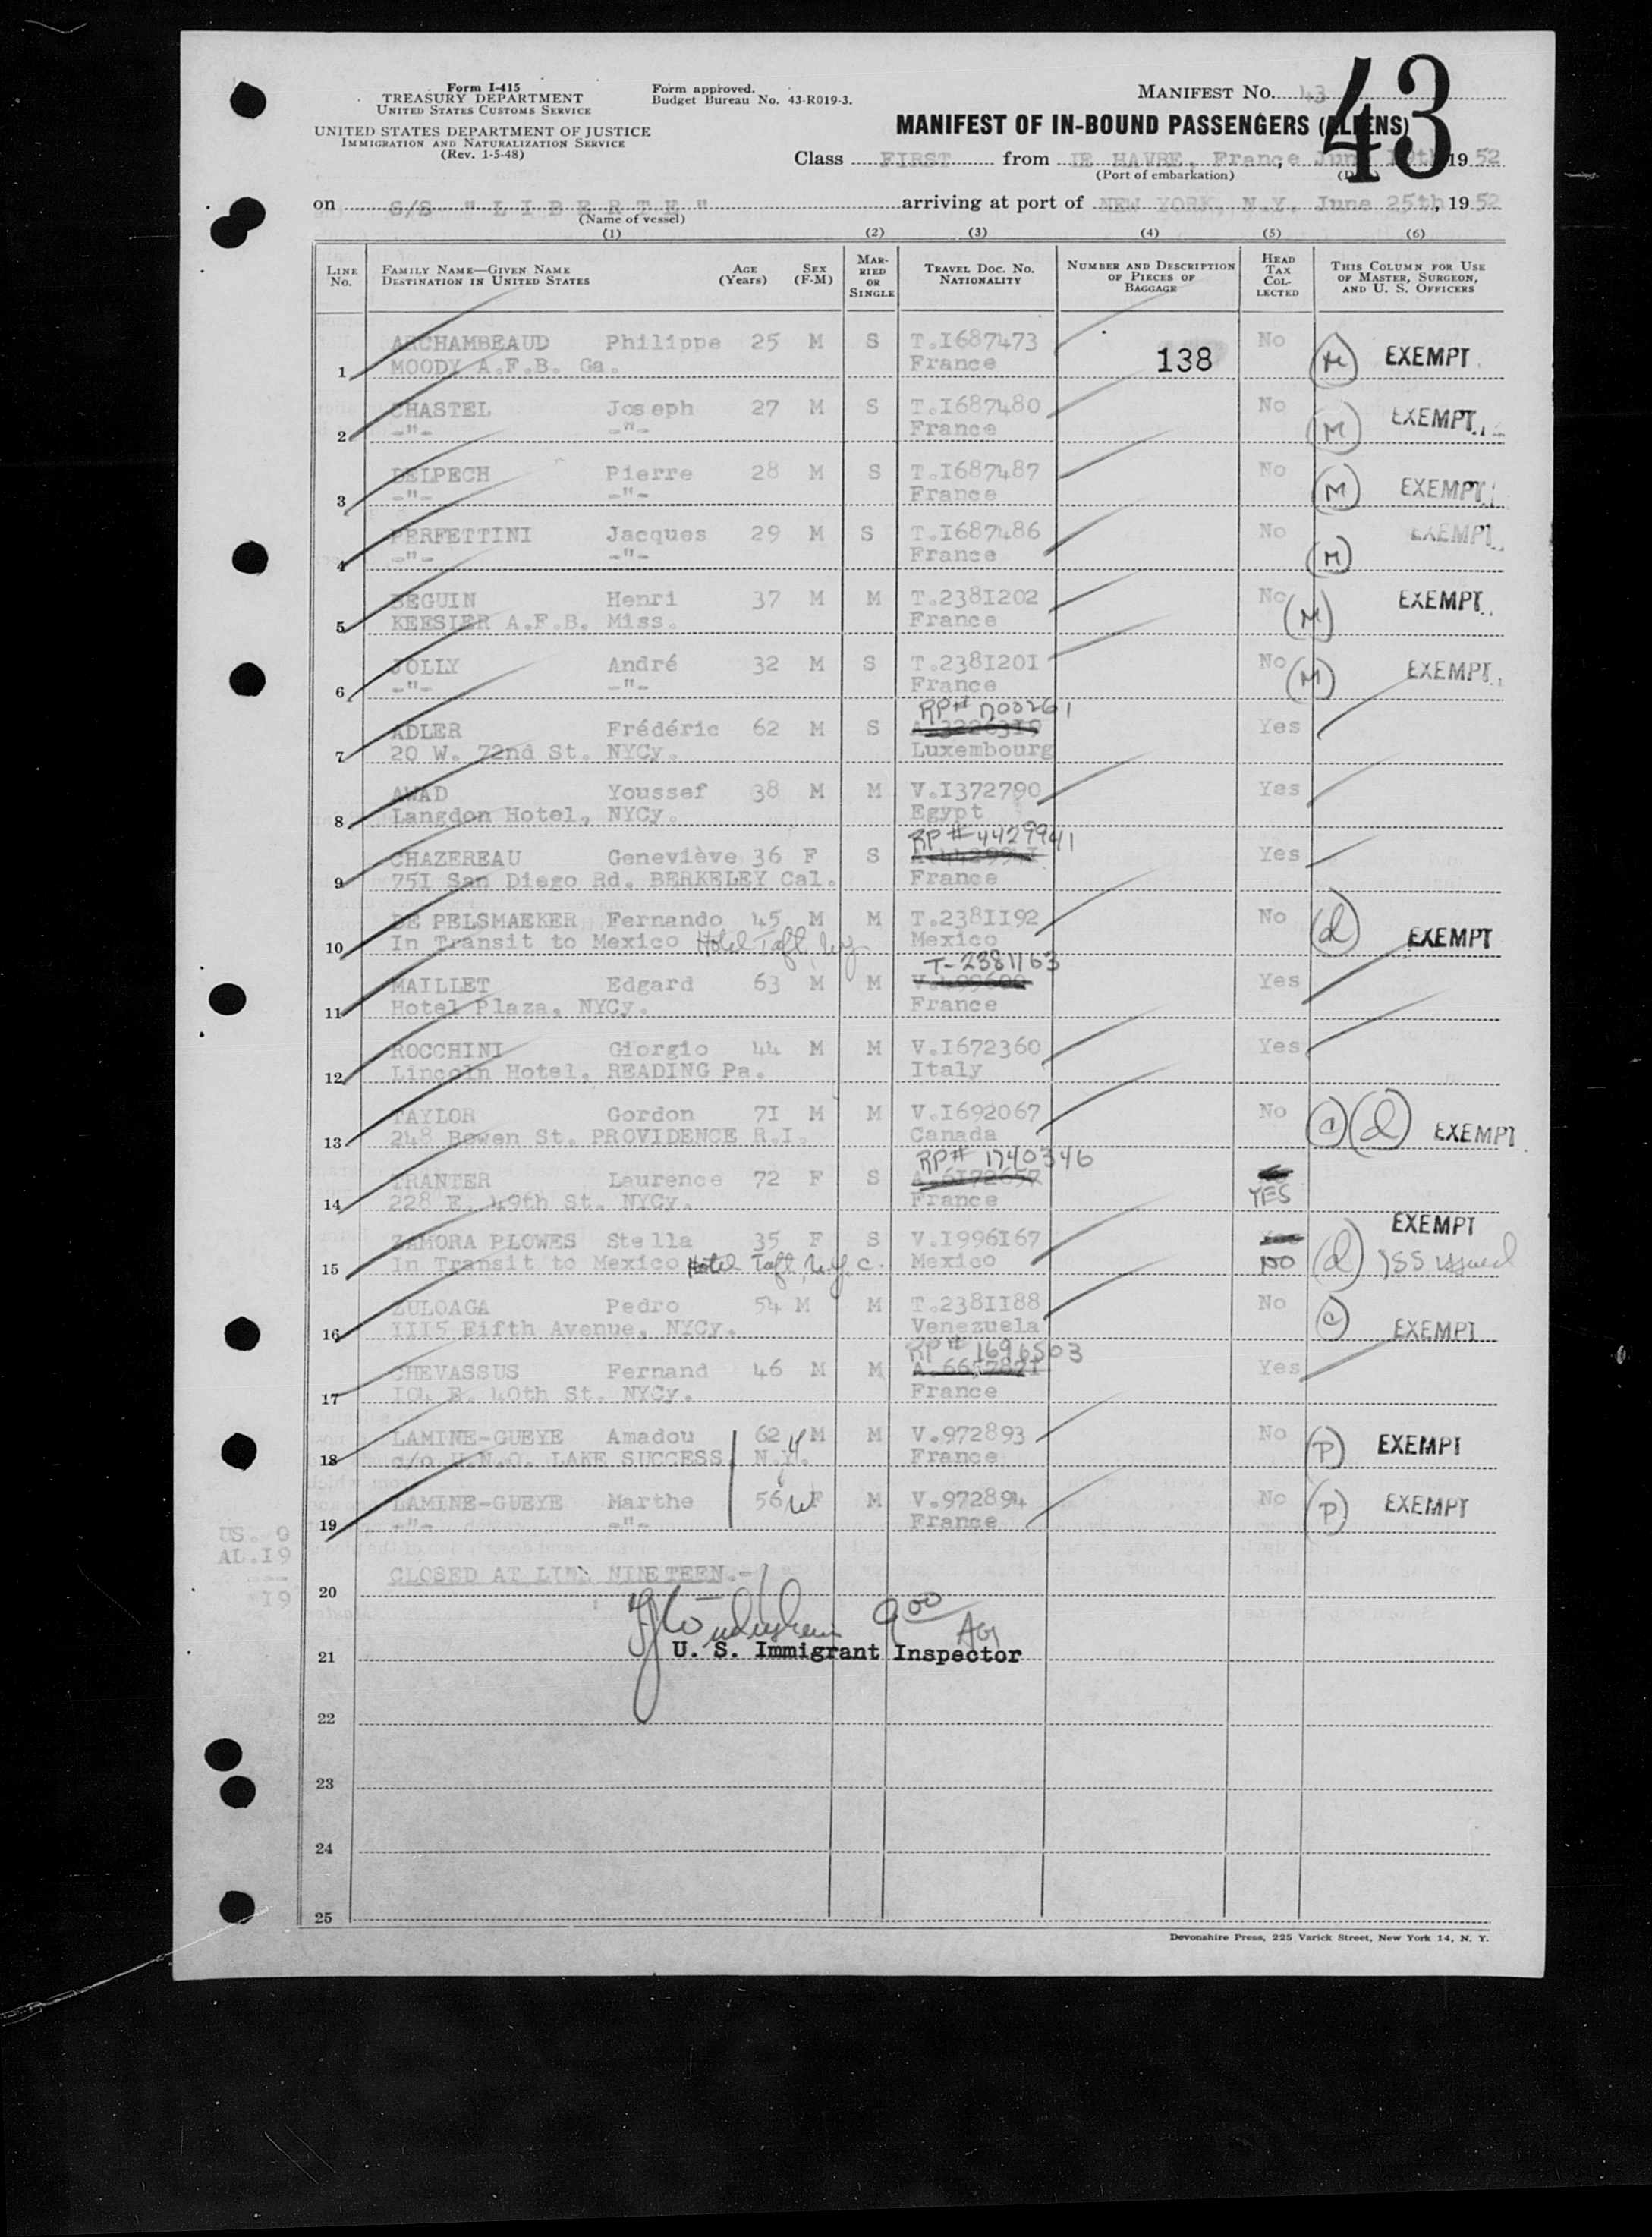 43
Form I-415
TREASURY DEPARTMENT
UNITED STATES CUSTOMS SERVICE
UNITED STATES DEPARTMENT OF JUSTICE
IMMIGRATION AND NATURALIZATION SERVICE
(Rev. 1-5-48)
Form approved.
Budget Bureau No. 43-R019-3.
MANIFEST NO. 43
MANIFEST OF IN-BOUND PASSENGERS (ALIENS)
Class FIRST from LE HAVRE, France, June 19th 1952
(Port of embarkation)
on S/S "LIBERTE" arriving at port of NEW YORK, N.Y. June 25th, 1952
(Name of vessel)
(1) (2) (3) (4) (5) (6)
LINE NO. FAMILY NAME—GIVEN NAME DESTINATION IN UNITED STATES AGE (Years) SEX (F-M) MARRIED OR SINGLE TRAVEL DOC. NO. NATIONALITY NUMBER AND DESCRIPTION OF PIECES OF BAGGAGE HEAD TAX COLLECTED THIS COLUMN FOR USE OF MASTER, SURGEON, AND U. S. OFFICERS
ARCHAMBEAUD Philippe 25 M S T.I687473 No
1 MOODY A.F.B. Ga. France 138 (M) EXEMPT
CHASTEL Joseph 27 M S T.I687480 No
2 -"- -"- France (M) EXEMPT
DELPECH Pierre 28 M S T.I687487 No
3 -"- -"- France (M) EXEMPT
PERFETTINI Jacques 29 M S T.I687486 No EXEMPT
4 -"- -"- France (M)
BEGUIN Henri 37 M M T.238I202 No EXEMPT
5 KEESLER A.F.B. Miss. France (M)
JOLLY André 32 M S T.238I20I No EXEMPT
6 -"- -"- France (M)
RP# D00261
ADLER Frédéric 62 M S Yes
7 20 W. 72nd St. NYCy. Luxembourg
AWAD Youssef 38 M M V.I372790 Yes
8 Langdon Hotel, NYCy. Egypt
RP # 4429941
CHAZEREAU Geneviève 36 F S Yes
9 75I San Diego Rd. BERKELEY Cal. France
DE PELSMAEKER Fernando 45 M M T.238II92 No (d)
10 In Transit to Mexico Hotel Taft, Ny Mexico EXEMPT
T-2381163
MAILLET Edgard 63 M M Yes
11 Hotel Plaza, NYCy. France
ROCCHINI Giorgio 44 M M V.I672360 Yes
12 Lincoln Hotel, READING Pa. Italy
TAYLOR Gordon 7I M M V.I692067 No
13 248 Bowen St. PROVIDENCE R.I Canada (c) (d) EXEMPT
RP# 1740346
TRANTER Laurence 72 F S A.6I72657
14 228 E. 49th St. NYCy. France YES
EXEMPT
ZAMORA PLOWES Stella 35 F S V.I996I67
15 In Transit to Mexico Hotel Taft, N.Y.C. Mexico NO (d) 155 issued
ZULOAGA Pedro 54 M M T.238II88 No (c)
16 III5 Fifth Avenue, NYCy. Venezuela EXEMPT
RP # 1696503
CHEVASSUS Fernand 46 M M A.665782I Yes
17 I04 E. 40th St. NYCy. France
LAMINE-GUEYE Amadou 62 M M V.972893 No
18 c/o U.N.O. LAKE SUCCESS, N.Y. France (P) EXEMPT
LAMINE-GUEYE Marthe 56 W F M V.972894 No
19 -"- -"- France (P) EXEMPT
US. 0
AL.I9
---
I9
20 CLOSED AT LINE NINETEEN.-
9 00
AG
21 U. S. Immigrant Inspector
22
23
24
25
Devonshire Press, 225 Varick Street, New York 14, N. Y.